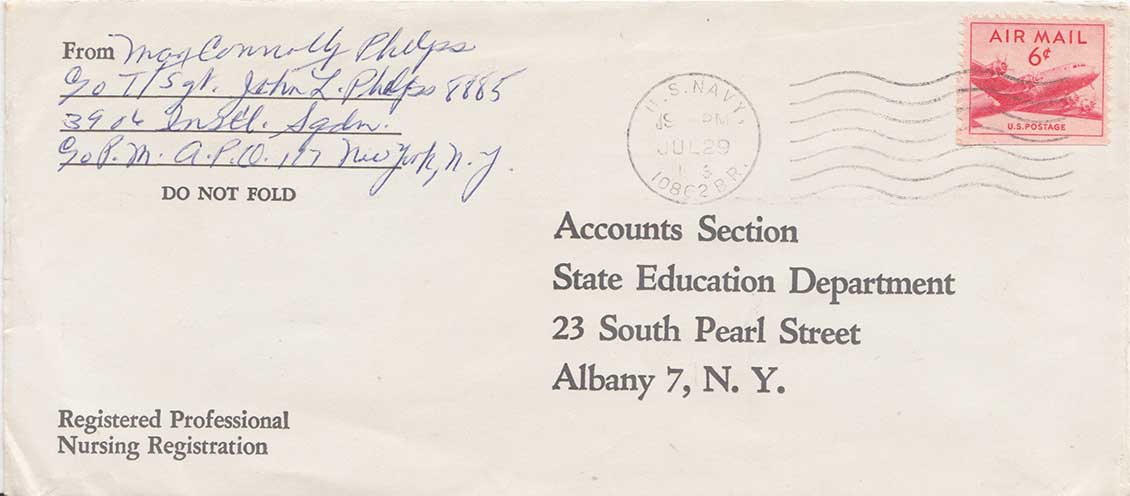 From May Connolly Phelps
c/o T/Sgt. John L. Phelps 8885
3906 Instl. Sqdn.
c/o P.M. A.P.O. 117 New York, N.Y.
DO NOT FOLD
AIR MAIL
6¢
U.S. POSTAGE
U.S. NAVY
PM
JUL 29
10862 BR.
Accounts Section
State Education Department
23 South Pearl Street
Albany 7, N. Y.
Registered Professional
Nursing Registration